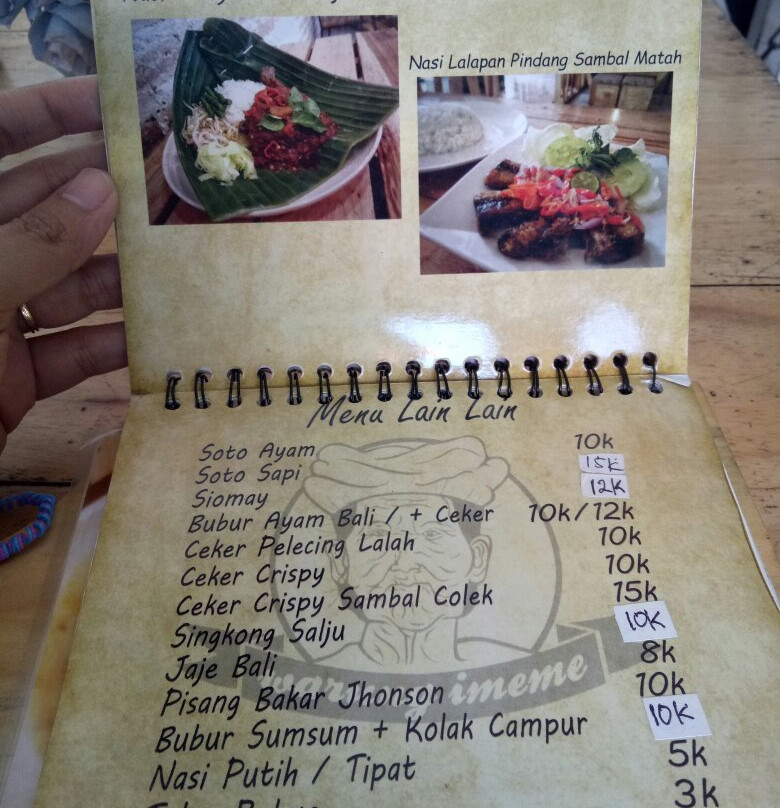 Nasi Lalapan Pindang Sambal Matah
Menu Lain Lain
Soto Ayam 10k
Soto Sapi 15K
Siomay 12K
Bubur Ayam Bali / + Ceker 10k/12k
Ceker Pelecing Lalah 10k
Ceker Crispy 10k
Ceker Crispy Sambal Colek 15k
Singkong Salju 10K
Jaje Bali 8k
Pisang Bakar Jhonson 10k
Bubur Sumsum + Kolak Campur 10K
Nasi Putih / Tipat 5k
3k
imeme